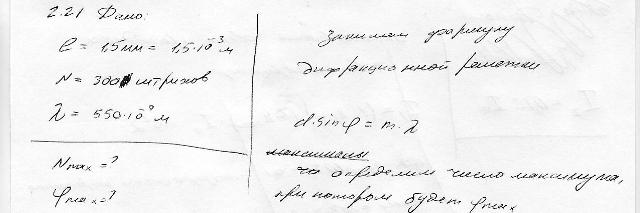 2.21 Дано:
ℓ = 1,5 мм = 1,5·10⁻³ м
N = 300 штрихов
λ = 550·10⁻⁹ м
Nmax = ?
φmax = ?
Запишем формулу
дифракционной решетки
d·sinφ = m·λ
определим число максимума,
при котором будет φmax